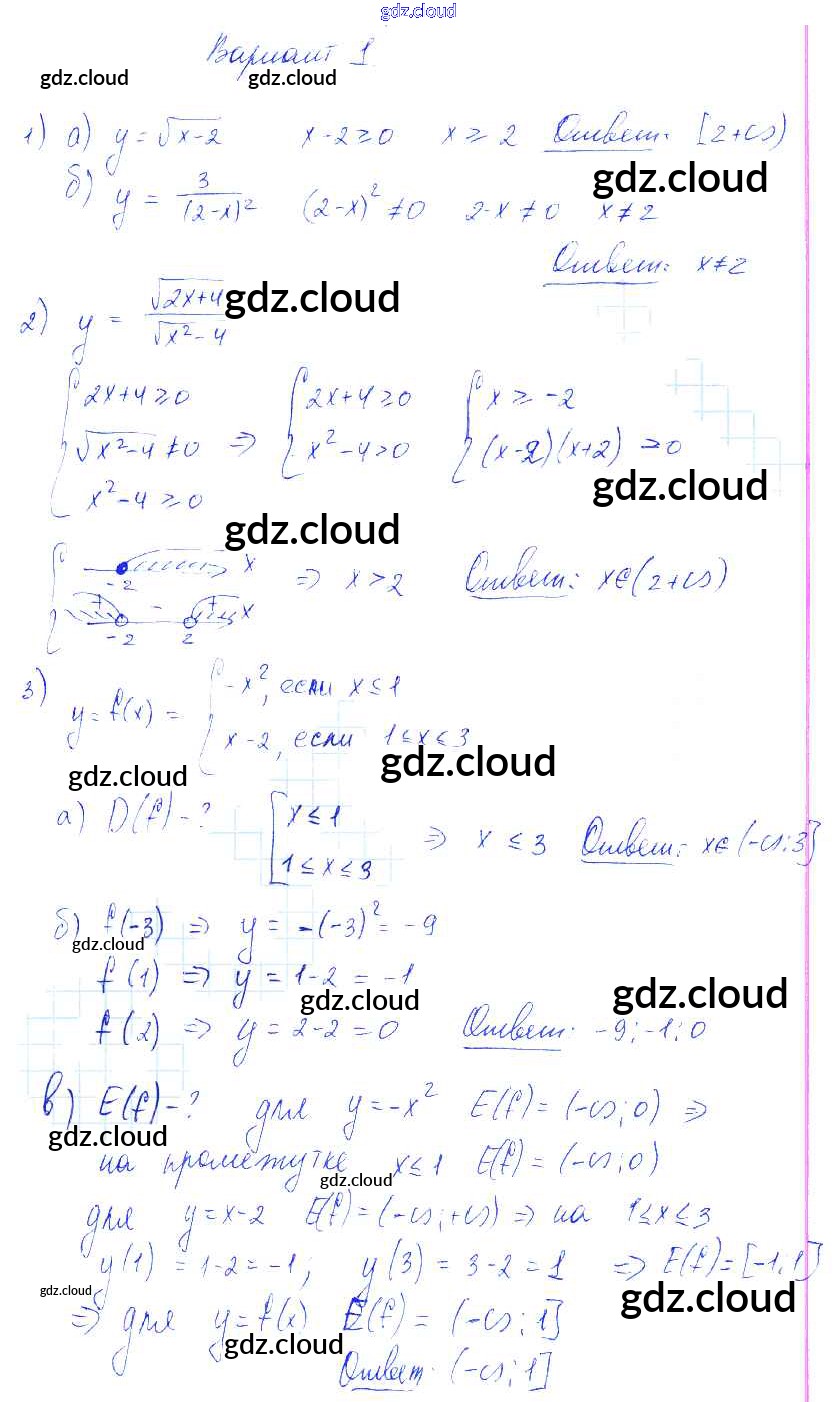 gdz.cloud
Вариант 1
gdz.cloud gdz.cloud
1) а) y = √x-2 x-2≥0 x≥2 Ответ: [2+∞)
gdz.cloud
б) y = 3/(2-x)² (2-x)²≠0 2-x≠0 x≠2
Ответ: x≠2
gdz.cloud
2) y = √2x+4/√x²-4
{2x+4≥0 {2x+4≥0 {x≥-2
√x²-4≠0 ⇒ x²-4>0 (x-2)(x+2)>0
x²-4≥0
gdz.cloud
gdz.cloud
-2 x ⇒ x>2 Ответ: x∈(2+∞)
+ - + x
-2 2
3) y=f(x) = {-x², если x≤1
x-2, если 1≤x≤3
gdz.cloud
gdz.cloud
а) D(f)-? [x≤1
1≤x≤3 ⇒ x≤3 Ответ: x∈(-∞;3]
б) f(-3) ⇒ y = -(-3)² = -9
gdz.cloud
f(1) ⇒ y = 1-2 = -1
gdz.cloud gdz.cloud
f(2) ⇒ y = 2-2 = 0 Ответ: -9; -1; 0
в) E(f)-? для y=-x² E(f) = (-∞;0) ⇒
gdz.cloud
на промежутке x≤1 E(f) = (-∞;0)
gdz.cloud
для y=x-2 E(f)=(-∞;+∞) ⇒ на 1≤x≤3
y(1) = 1-2=-1; y(3) = 3-2=1 ⇒ E(f)=[-1;1]
gdz.cloud gdz.cloud
⇒ для y=f(x) E(f) = (-∞;1]
gdz.cloud
Ответ: (-∞;1]